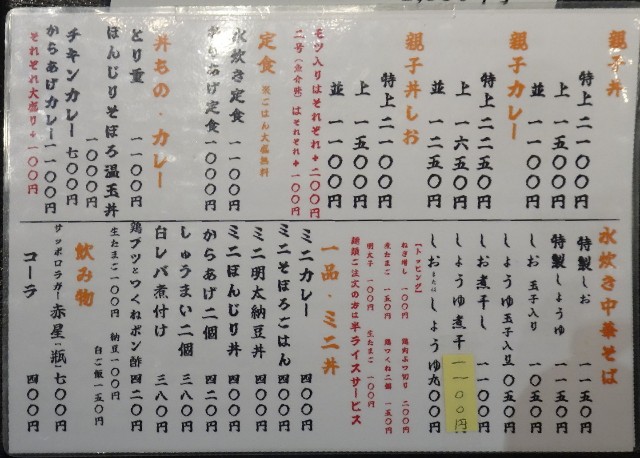 親子丼
特上 二一〇〇円
上 一五〇〇円
並 一一〇〇円
親子カレー
特上 二二五〇円
上 一六五〇円
並 一二五〇円
親子丼しお
特上 二一〇〇円
上 一五〇〇円
並 一一〇〇円
モツ入りはそれぞれ+二〇〇円
二号(魚介味)はそれぞれ+一〇〇円
定食 ※ごはん大盛無料
水炊き定食 一一〇〇円
からあげ定食 一〇〇〇円
丼もの・カレー
とり重 一一〇〇円
ぼんじりそぼろ温玉丼
一〇〇〇円
チキンカレー 七〇〇円
からあげカレー 一一〇〇円
それぞれ大盛り+一〇〇円
水炊き中華そば
特製しお 一一五〇円
特製しょうゆ 一一五〇円
しお玉子入り 一〇五〇円
しょうゆ玉子入り 一〇五〇円
しお煮干し 一一〇〇円
しょうゆ煮干 一一〇〇円
しおまたはしょうゆ 九〇〇円
【トッピング】
ねぎ増し 一〇〇円 鶏肉ぶつ切り 二〇〇円
生たまご 一〇〇円 鶏つくね二個 一五〇円
明太子 一〇〇円 生たまご 一〇〇円
麺類ご注文の方は半ライスサービス
一品・ミニ丼
ミニカレー 四〇〇円
ミニそぼろごはん 四〇〇円
ミニ明太納豆丼 四〇〇円
ミニぼんじり丼 四〇〇円
からあげ二個 四二〇円
しゅうまい二個 三八〇円
白レバ煮付け 三八〇円
鶏ブツとつくねポン酢 四二〇円
生たまご 一〇〇円 納豆 一〇〇円
白ご飯 一五〇円
飲み物
サッポロラガー赤星「瓶」 七〇〇円
コーラ 四〇〇円